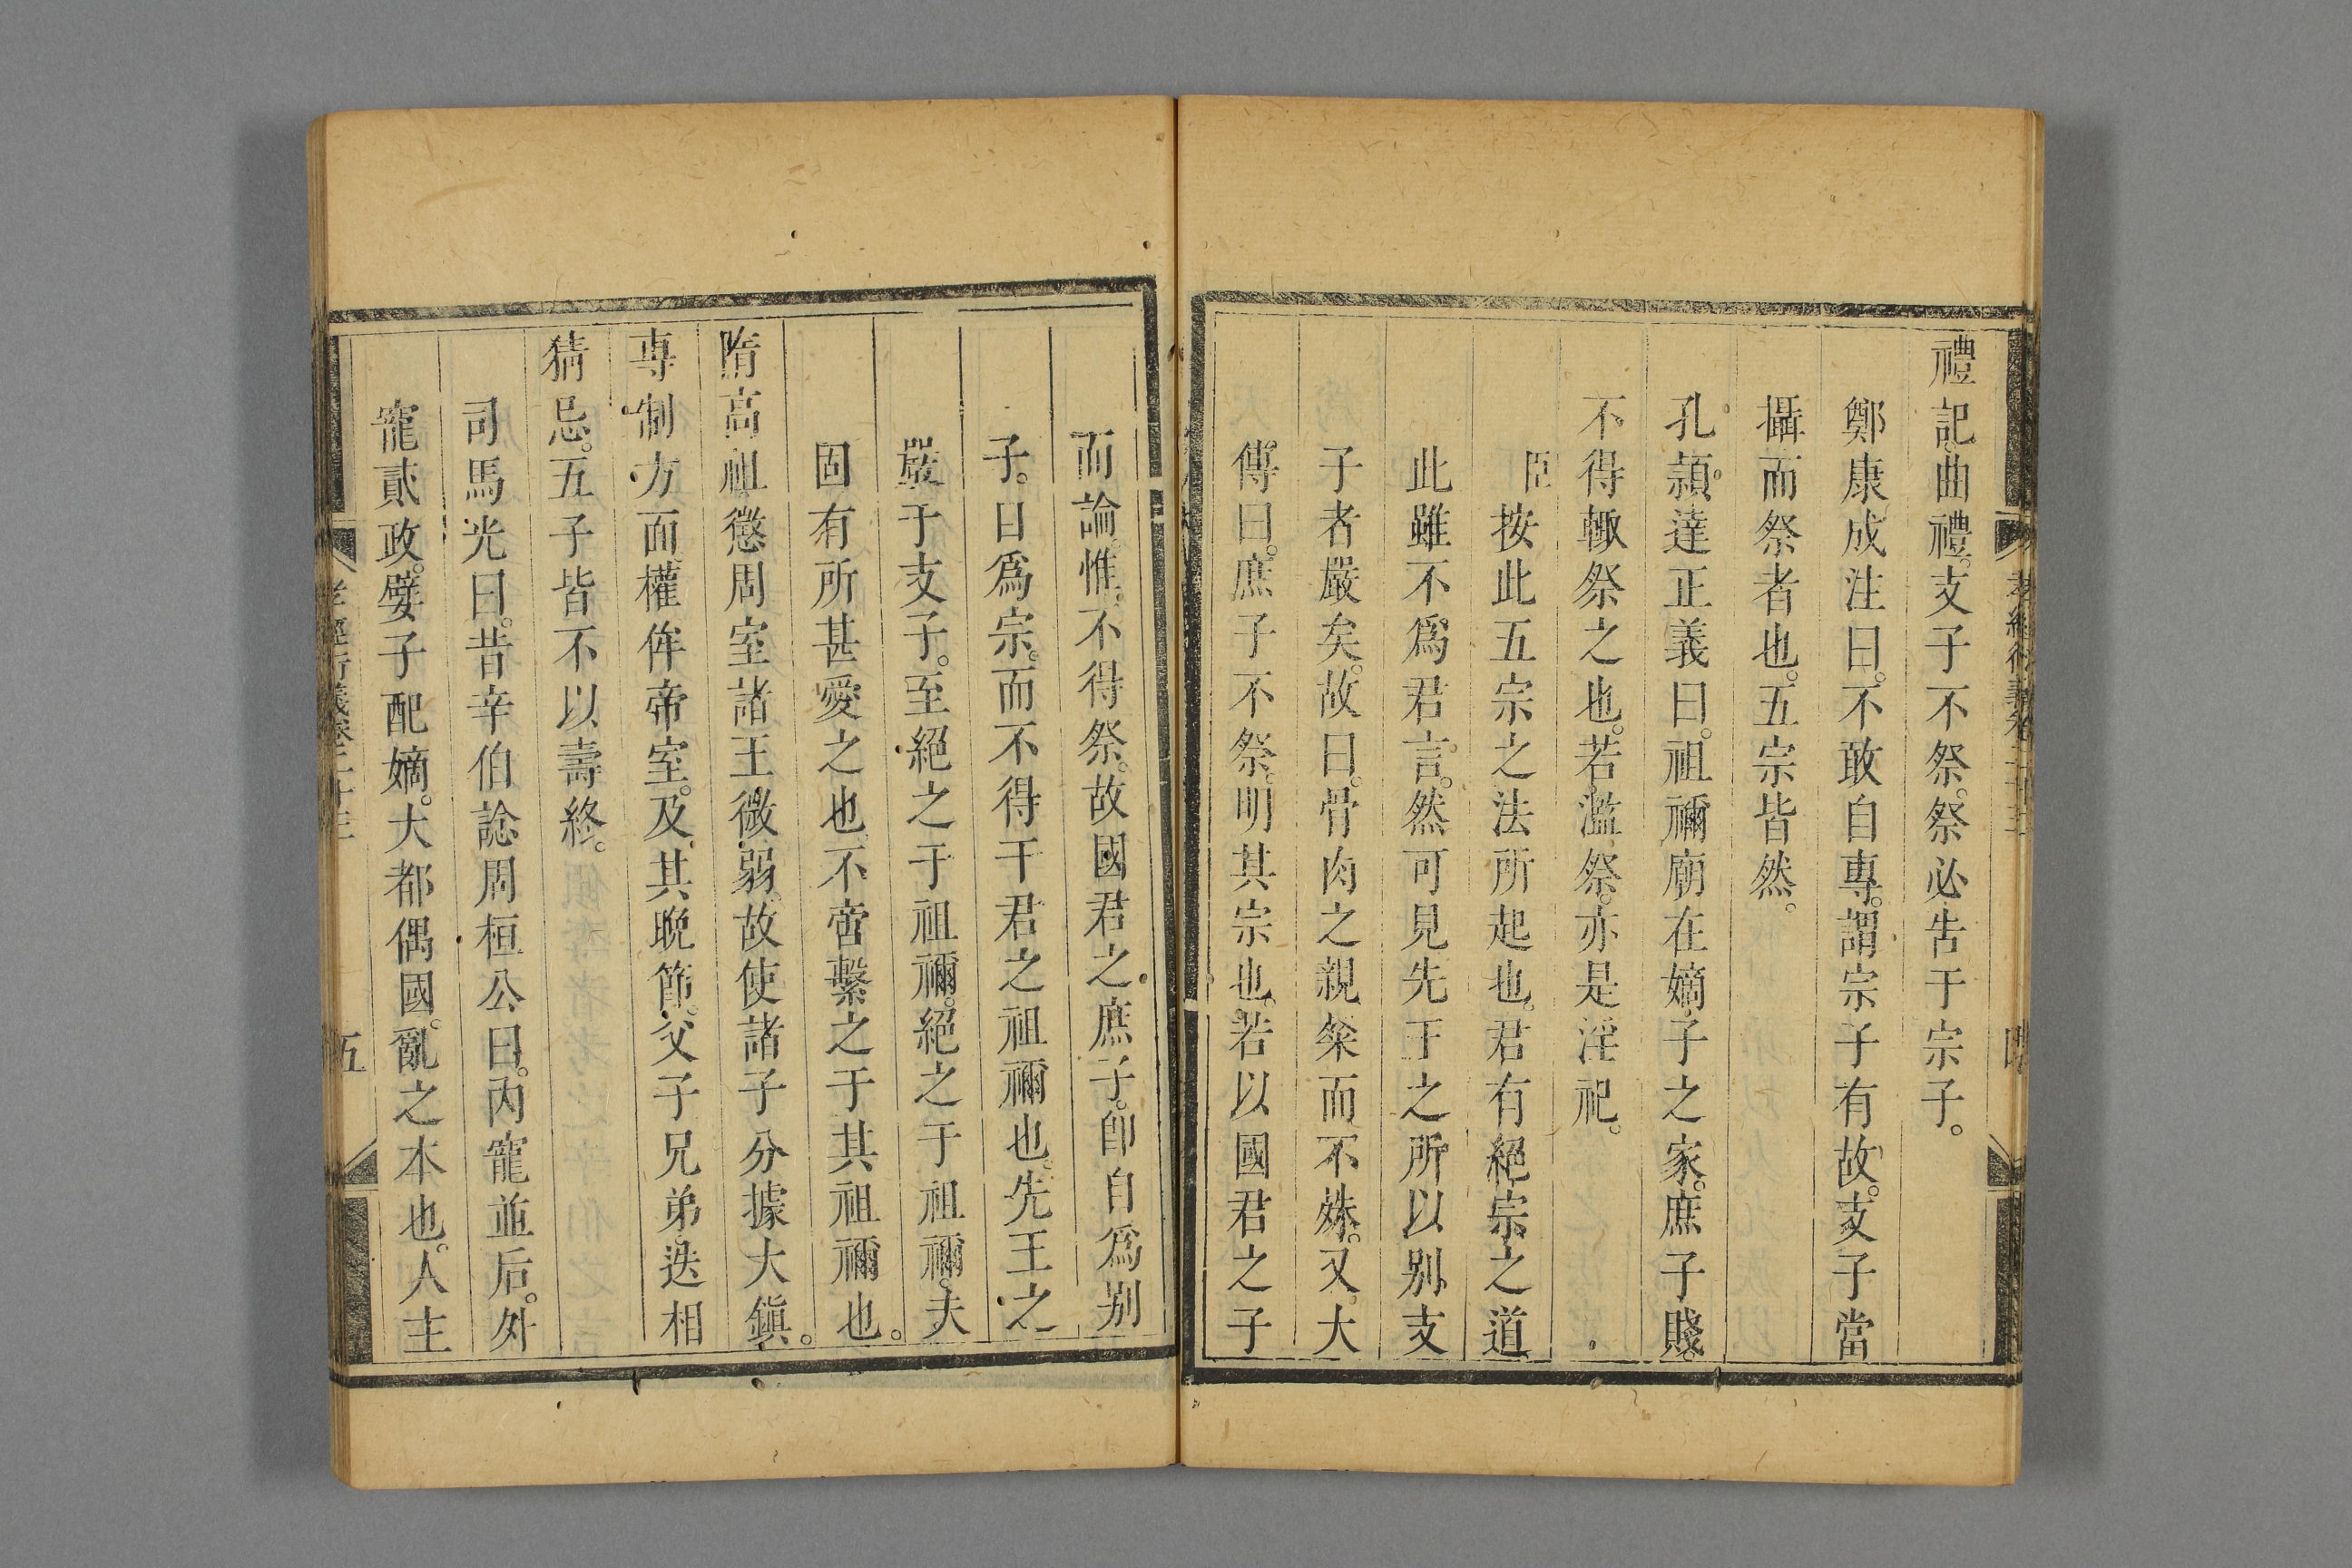 禮記。曲禮。支子不祭。祭必告于宗子。
鄭康成注曰。不敢自專。謂宗子有故。支子當
攝而祭者也。五宗皆然。
孔頴達正義曰。祖禰廟在嫡子之家。庶子賤。
不得輙祭之也。若濫祭。亦是淫祀。
臣按此五宗之法所起也。君有絕宗之道
此雖不爲君言。然可見先王之所以别支
子者嚴矣。故曰。骨肉之親粲而不殊。又大
傳曰。庶子不祭。明其宗也。若以國君之子
而論。惟不得祭。故國君之庶子。卽自爲别
子。曰爲宗。而不得干君之祖禰也。先王之
嚴于支子。至絕之于祖禰。絕之于祖禰。夫
固有所甚愛之也。不啻繫之于其祖禰也。
隋高祖懲周室諸王微弱。故使諸子分據大鎮。
專制方面。權侔帝室。及其晚節。父子兄弟迭相
猜忌。五子皆不以壽終。
司馬光曰。昔辛伯諗周桓公曰。內寵並后。外
寵貳政。嬖子配嫡。大都偶國。亂之本也。人主
孝經衍義卷二十三
五